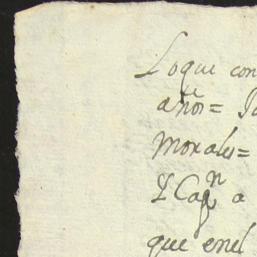 Lo que con
años =
morales =
Y Capn a
que enel